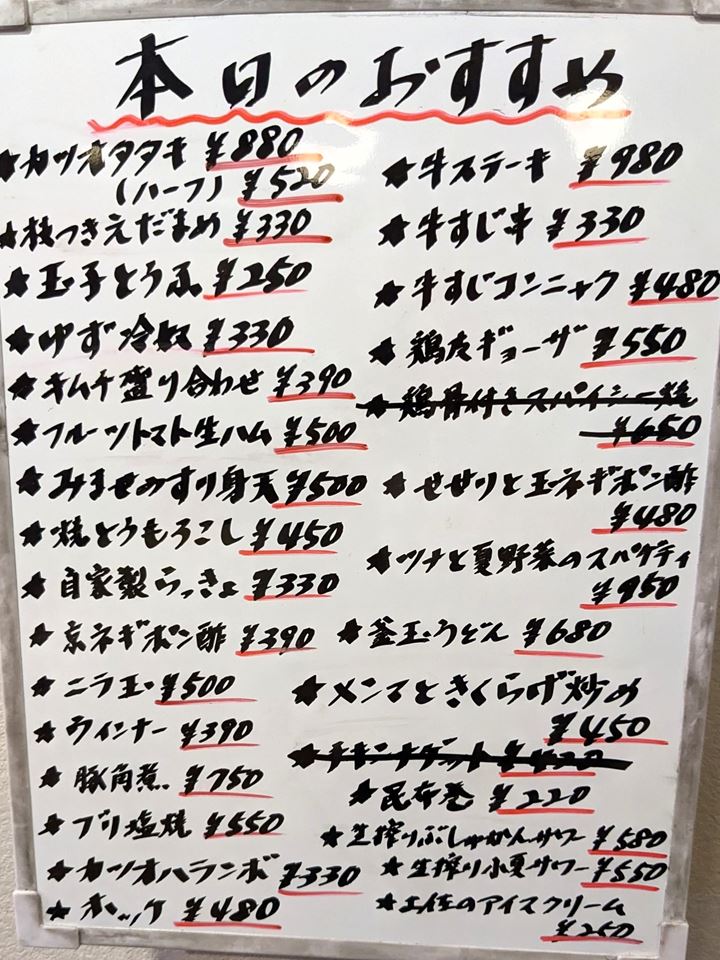 本日のおすすめ
★カツオタタキ ¥880
(ハーフ) ¥520
★枝つきえだまめ ¥330
★玉子とうふ ¥250
★ゆず冷奴 ¥330
★キムチ盛り合わせ ¥390
★フルーツトマト生ハム ¥500
★みませのすり身天 ¥500
★焼とうもろこし ¥450
★自家製らっきょ ¥330
★京ネギポン酢 ¥390
★ニラ玉 ¥500
★ウィンナー ¥390
★豚角煮 ¥750
★ブリ塩焼 ¥550
★カツオハランボ ¥330
★ホッケ ¥480
★牛ステーキ ¥980
★牛すじ串 ¥330
★牛すじコンニャク ¥480
★鶏皮ギョーザ ¥550
★鶏骨付きスパイシー焼
¥650
★せせりと玉ネギポン酢
¥480
★ツナと夏野菜のスパゲティ
¥950
★釜玉うどん ¥680
★メンマときくらげ炒め
¥450
★チキンナゲット ¥420
★昆布巻 ¥220
★生搾りぶしゅかんサワー ¥580
★生搾り小夏サワー ¥550
★土佐のアイスクリーム
¥250